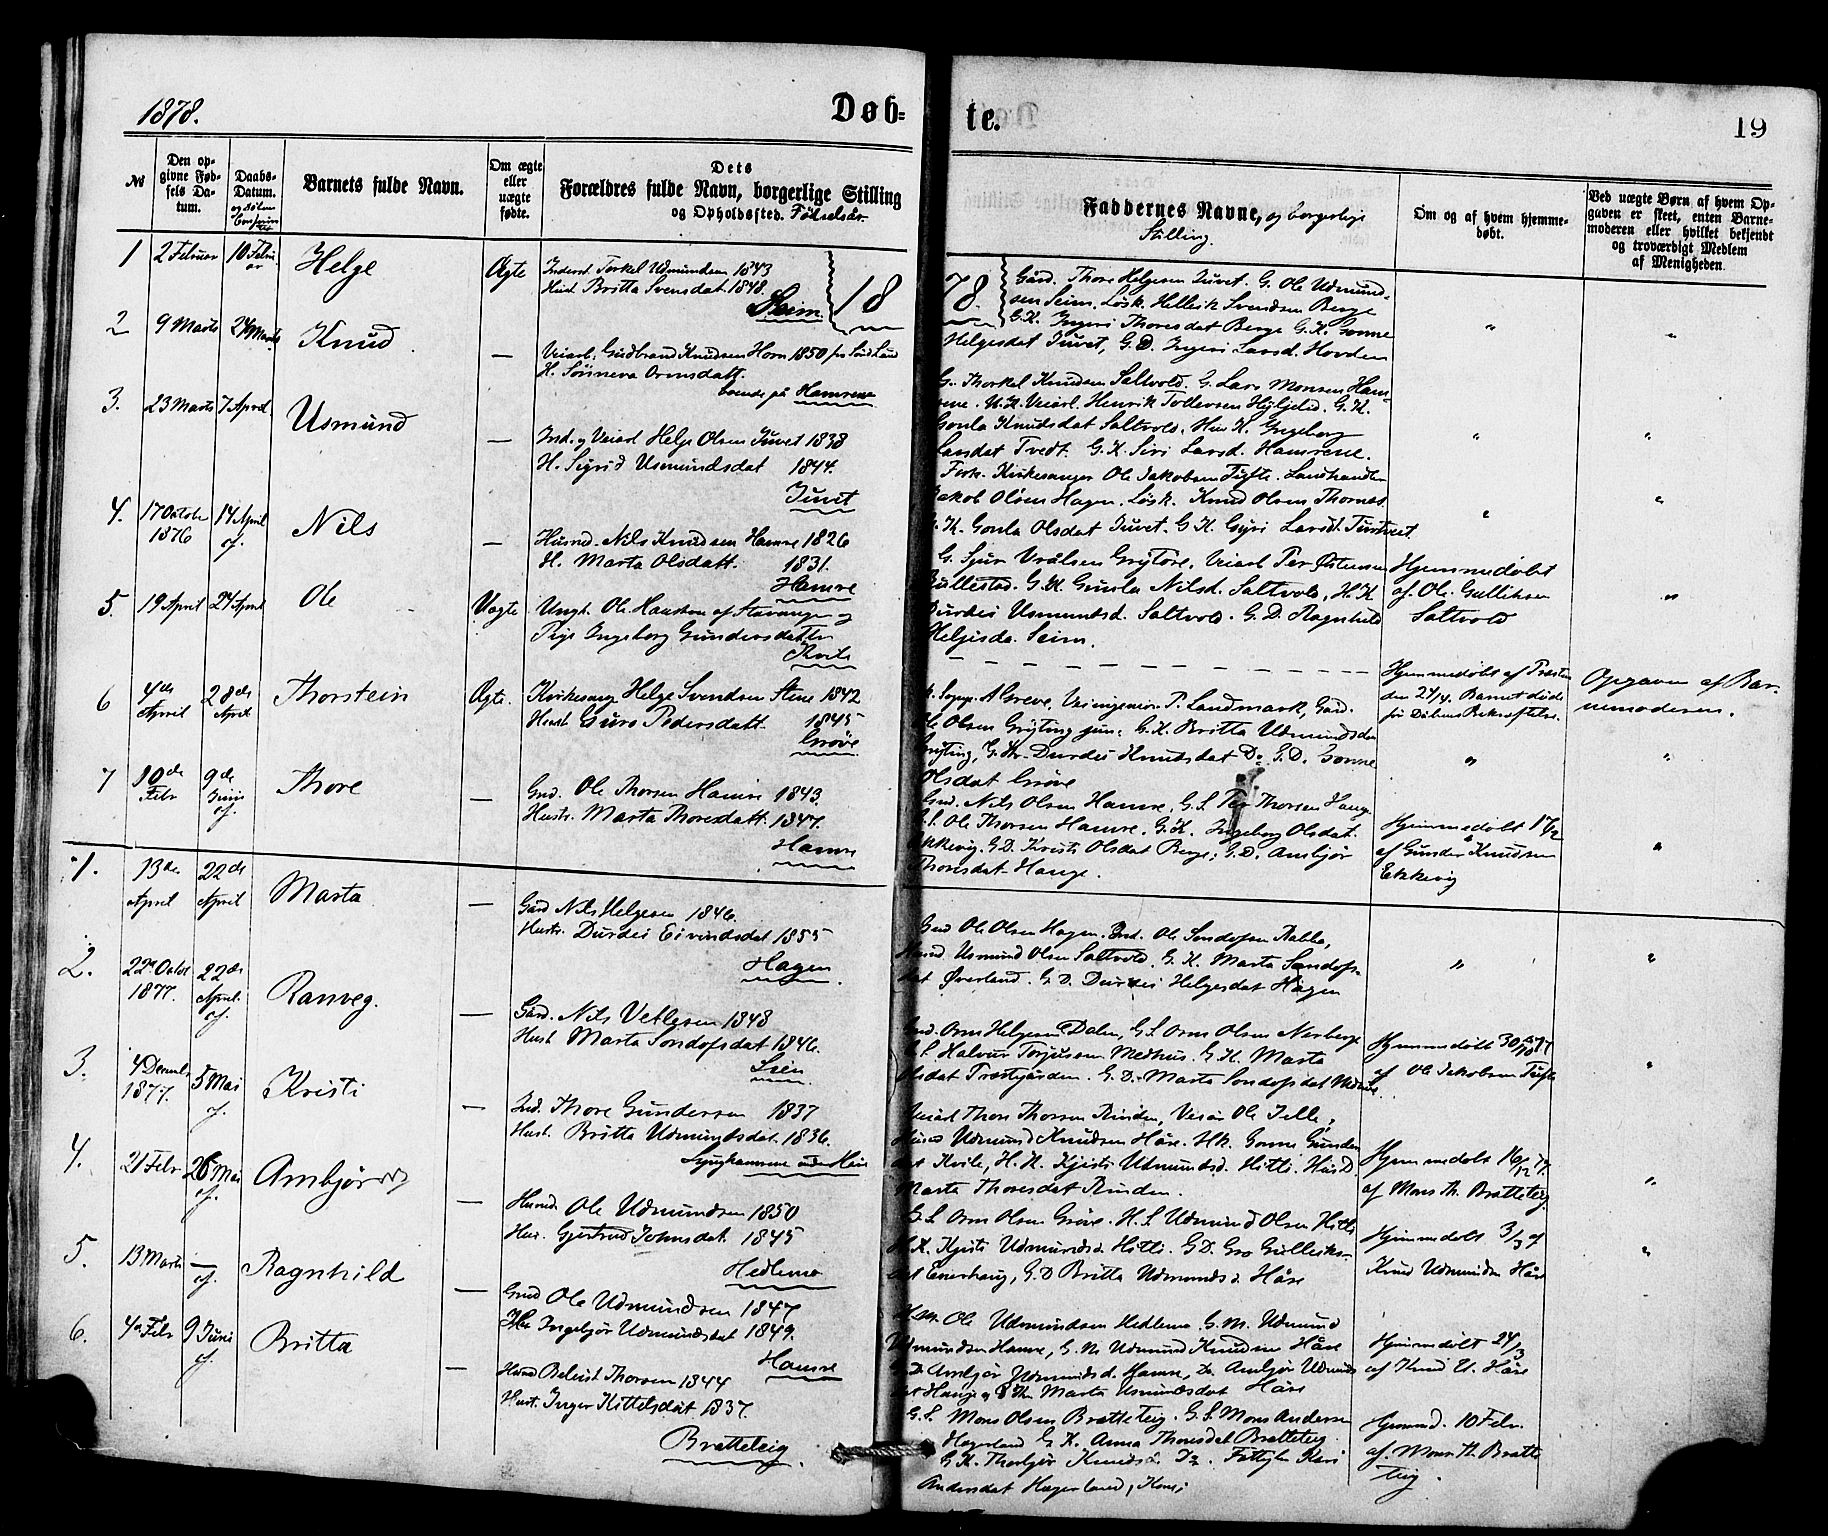 1878.
Døb=
te.
19
No
Den op-
givne Fød-
sels Da-
tum.
Daabs-
Datum.
Barnets fulde Navn.
Om ægte
eller
uægte
fødte.
Dets
Forældres fulde Navn, borgerlige Stilling
og Opholdssted. Fødselsår
Faddernes Navne, og borgerlige
Stilling.
Om og af hvem hjemme-
døbt.
Ved uægte Børn af hvem Op-
gaven er skeet, enten Barne-
moderen eller hvilket bekjendt
og troværdigt Medlem
af Menigheden.
1
2 Februar
10 Febru-
ar
Helge
Ægte
Torkel Udmundsen 1843
Hust. Britta Svensdat. 1848.
Seim
18
78.
Gård. Thore Helgesen Juvet. G. Ole Udmund-
sen Seim. Løsk. Hellek Svendsen Berge
G.K. Ingeri Thoresdat Berge G.K. Gonne
Helgesdat Juvet, G.D. Ingeri Larsd. Hovden
2
9 Marts
24 Marts
Knud
—
Veiarb. Gudbrand Knudsen Horn 1850
H. Sønneva Ormsdatt.
boende på Hamrene
G. Thorkel Knudsen Saltvold. G. Lars Monsen Ham-
rene. Veiarb. Henrik Tollevsen
Gonla Knudsdat Saltvold. H.K. Ingeborg
Larsdat Tvedt. G.K. Siri Larsd. Hamrene.
3.
23 Marts
7 April
Usmund
—
Ind. og Veiarb Helge Olsen Juvet 1838
H. Sigrid Usmundsdat 1844.
Juvet
Kirkesanger Ole Jakobsen Tufte. Landhandler
Jakob Olsen Hagen. Løsk. Knud Olsen Thornes
G.K. Gonla Olsdat Juvet. G.K. Guri Larsd.
4.
17 October
1876
14 April
cf.
Nils
—
Husmd. Nils Knudsen Hamre 1826
H. Marta Olsdatt. 1831.
Hamre
G. Sjur Vrålsen Grytøre, Veiarb Per Østensen
Gullestad. G.K. Gunla Nilsd. Saltvold, H.K.
Durdei Usmundsd. Saltvold. G.D. Ragnhild
Helgesda. Seim.
Hjemmedøbt
af Ole Gulliksen
Saltvold
5
19 April
24 April
Ole
Uægte
Ungk. Ole Hanson af Stavanger og
Pige Ingeborg Gundersdatter
Kvile
Hjemmedøbt af Præsten
den 24/4. Barnet døde
før Dåbens Bekræftelse.
Opgaven af Bar-
nemoderen.
6
4de
April
28de
April
Thorstein
Ægte.
Kirkesang Helge Svendsen Stene 1842
Hust. Guro Pedersdatt. 1845
Grøve
A Greve, Veiingeniør P. Landmark, Gård.
Ole Olsen Gryting jun. G.K. Britta Udmundsda
Gryting, Durdei Knutsdat Do G.D. Gonne
Olsdat Grøve
7
10de
Febr
9de
Juni
cf.
Thore
—
Grd. Ole Thorsen Hamre 1843.
Hustr. Marta Thoresdatt. 1847.
Hamre
Grd. Nils Olsen Hamre, G.S. Per Thorsen Hauge
G.S. Ole Thorsen Hamre. G.K. Ingeborg Olsdat.
Ekkevig. G.D. Kristi Olsdat Berge; G.D. Ambjør
Thoresdat Hauge.
Hjemmedøbt 17/2
af Gunder Knudsen
Ekkevig
1.
13de
April
22de
April
Marta
—
Gård Nils Helgesen 1846.
Hustr. Durdei Eivindsdat 1855
Hagen
Grd Ole Olsen Hagen. Ind. Ole Sondofsen Rabba,
Husmd Usmund Olsen Saltvold. G.K. Marta Sondofs-
dat Øverland. G.D. Durdei Helgesdat Hagen
2.
22de Octbr
1877.
22de
April.
cf.
Ranveg.
—
Gård. Nils Vetlesen 1848
Hust Marta Sondofsdat 1846.
Lien
Grd. Orm Helgesen Dalen, G.S. Orm Olsen Nerberge
G.S. Halvor Torjussen Medhus. G.K. Marta
Olsdat Præstgården. G.D. Marta Sondofsdat
Hjemmedøbt 30/10 77
af Ole Jakobsen Tufte
3.
4 Decembr
1877.
5 Mai
cf.
Kristi
—
Ind. Thore Gundersen 1837
Hust. Britta Udmundsdat. 1836.
Veiarb Thore Thorsen Rinden, Ole Jelle,
Husmd Udmund Knudsen Håse. Hk. Gonne Gunders
dat Kvile, H.K. Kjersti Udmundsd. Hitli.
Marta Thoresdat Rinden.
Hjemmedøbt 16/12 77.
af Mons Th. Bratteteig.
4.
21 Febr
26 Mai
cf.
Ambjør
—
Husmd. Ole Udmundsen 1850
Hus. Gjertrud Johnsdat. 1845
Hedlemo
G.S. Orm Olsen Grøve. H.S. Udmund Olsen Hitli
H.K. Kjersti Udmundsd. Hitli. G.D. Gro Gulleiks-
dat, G.D. Britta Udmundsd. Håse
Hjemmedøbt 3/3 af
Knud Udmundsen Håse
5.
13 Marts
—
cf.
Ragnhild
—
Grmd Ole Udmundsen 1847
Hu. Ingebjør Udmundsdat 1849.
Hamre
Ole Udmundsen Hedlemo. G.M. Udmund
Udmundsen Hamre, G.M. Udmund Knudsen Håse
Ambjør Udmundsd. Hamre, Do Ambjør Udmunds
dat Hauge og Marta Usmundsdat Håse
Hjemmedøbt 24/3
af Knud U. Håse
6.
4de Febr
9 Juni
cf.
Britta
—
Husmd Beleist Thorsen 1844
Hust. Inger Kittelsdat 1837.
Bratteteig
G.S. Mons Olsen Bratteteig. G.S. Mons Andersen
Hagerland G.K. Anna Thoresdat Bratteteig
G.K. Thorbjør Knudsd. Do. Kari
Andersdat Hagerland,
10 Febr.
af Mons Th. Bratte
teig.